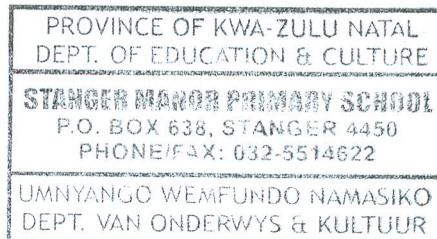 PROVINCE OF KWA-ZULU NATAL
DEPT. OF EDUCATION & CULTURE
STANGER MANOR PRIMARY SCHOOL
P.O. BOX 638, STANGER 4450
PHONE/FAX: 032-5514622
UMNYANGO WEMFUNDO NAMASIKO
DEPT. VAN ONDERWYS & KULTUUR